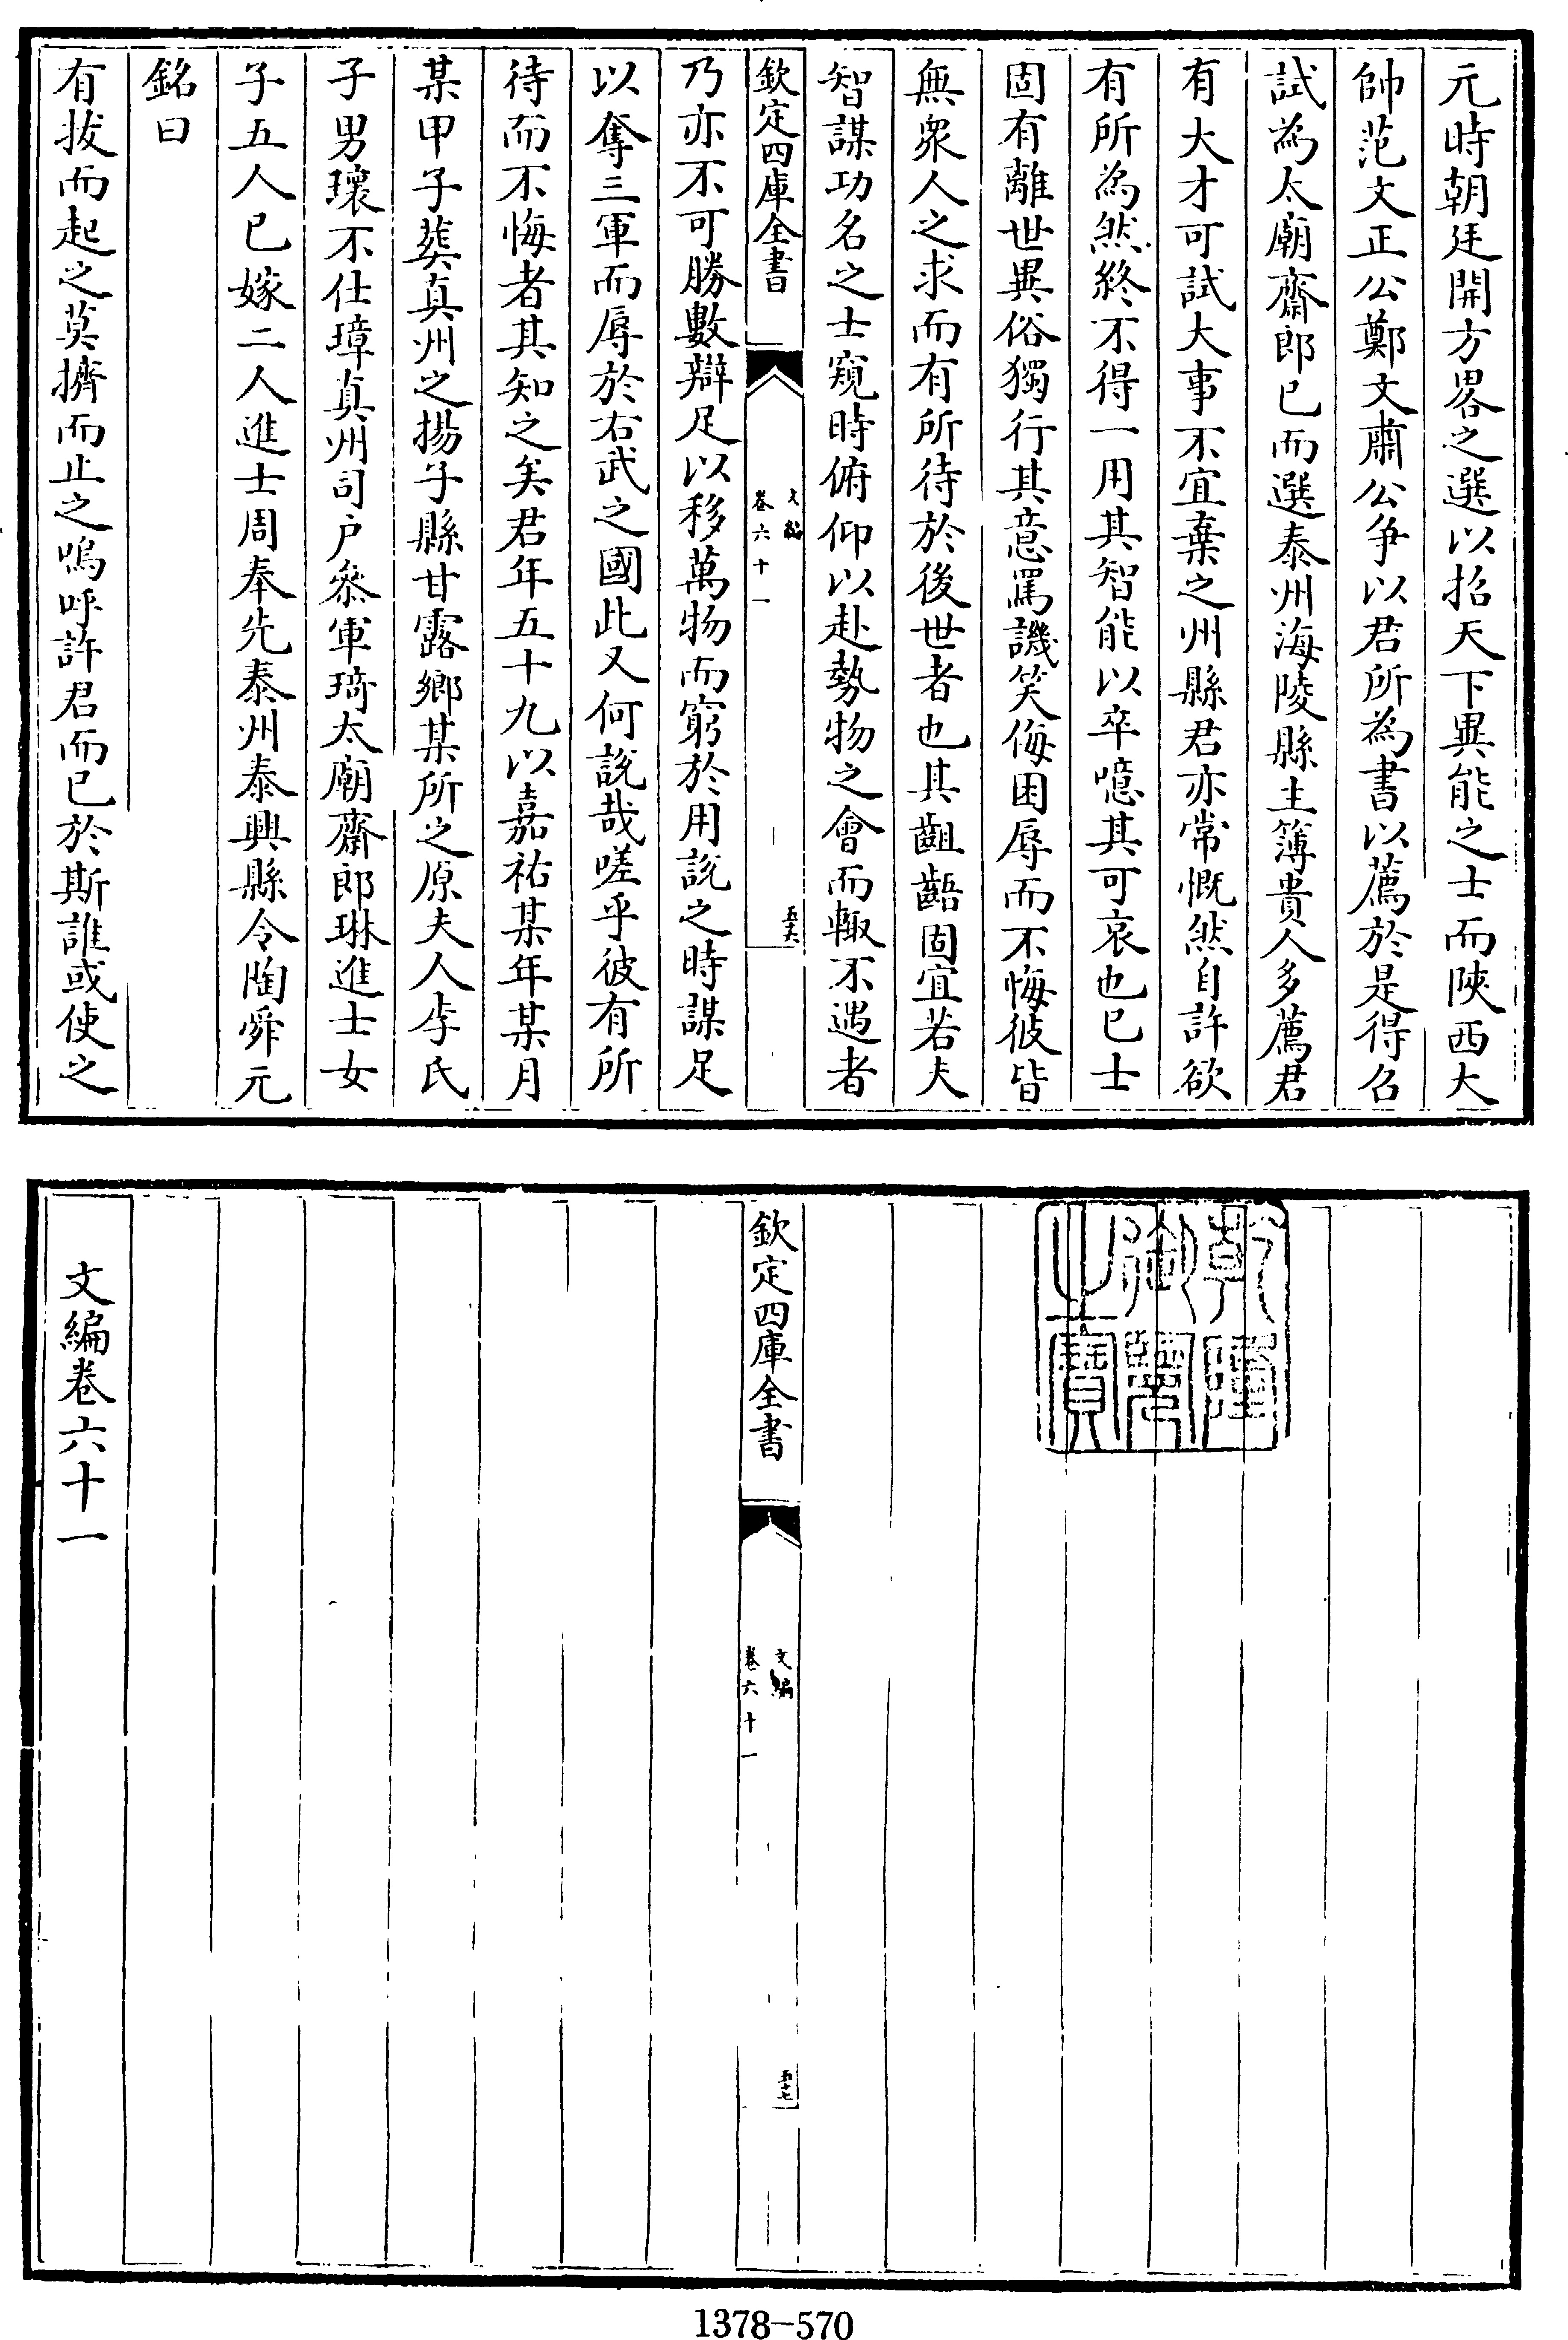 元時朝廷開方畧之選以招天下異能之士而陝西大
帥范文正公鄭文肅公争以君所為書以薦於是得召
試為太廟齋郎已而選泰州海陵縣主簿貴人多薦君
有大才可試大事不宜棄之州縣君亦常慨然自許欲
有所為然終不得一用其智能以卒噫其可哀也已士
固有離世異俗獨行其意罵譏笑侮困辱而不悔彼皆
無衆人之求而有所待於後世者也其齟齬固宜若夫
智謀功名之士窺時俯仰以赴勢物之會而輙不遇者
欽定四庫全書
文編
卷六十一
五六
乃亦不可勝數辯足以移萬物而窮於用說之時謀足
以奪三軍而辱於右武之國此又何說哉嗟乎彼有所
待而不悔者其知之矣君年五十九以嘉祐某年某月
某甲子葬真州之揚子縣甘露鄉某所之原夫人李氏
子男瓌不仕璋真州司户叅軍琦太廟齋郎琳進士女
子五人已嫁二人進士周奉先泰州泰興縣令陶舜元
銘曰
有拔而起之莫擠而止之嗚呼許君而已於斯誰或使之
乾隆御覽之寶
欽定四庫全書
文編
卷六十一
五十七
文編卷六十一
1378-570